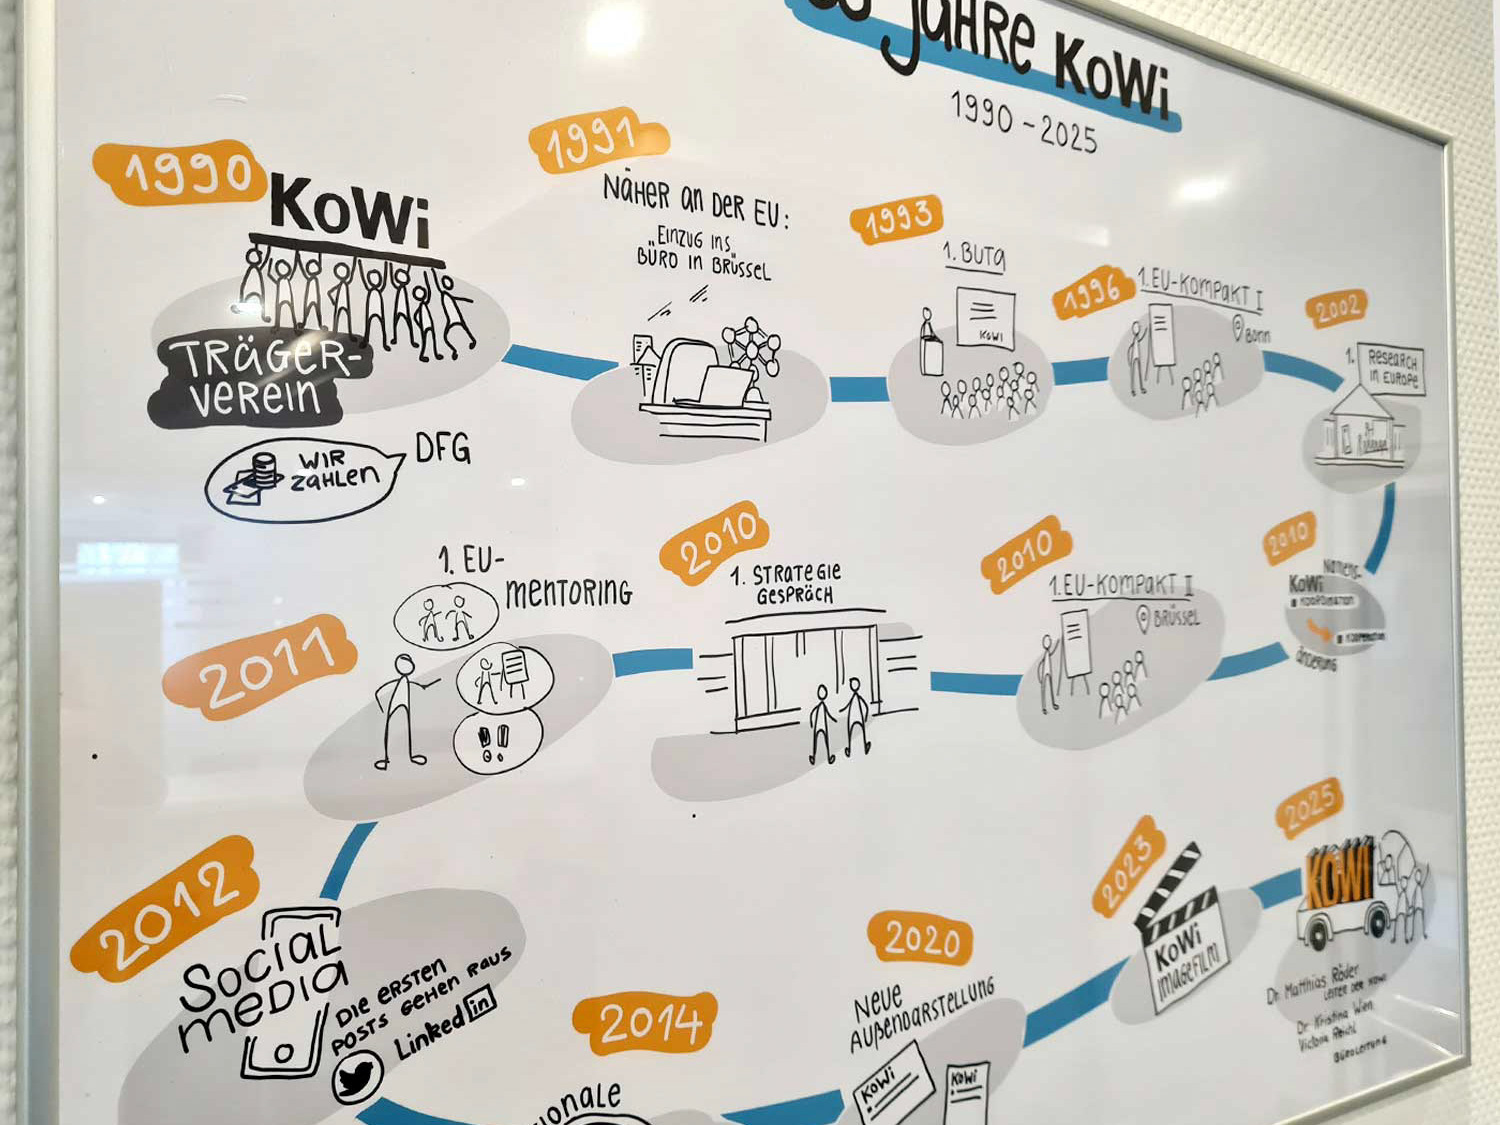 Jahre KoWi
1990 - 2025
1990
KoWi
TRÄGER-
VEREIN
WIR
ZAHLEN
DFG
1991
NÄHER AN DER EU:
EINZUG INS
BÜRO IN BRÜSSEL
1993
1. BUTA
KOWI
1996
1. EU-KOMPAKT I
Bonn
2002
1. RESEARCH
IN EUROPE
2010
NAMENS-
KoWi
KOORDINATION
KOOPERATION
ÄNDERUNG
2010
1. EU-KOMPAKT II
BRÜSSEL
2010
1. STRATEGIE
GESPRÄCH
2011
1. EU-
MENTORING
2012
SOCIAL
MEDIA
DIE ERSTEN
POSTS GEHEN RAUS
Linked in
2014
2020
NEUE
AUßENDARSTELLUNG
KOWI
KOWI
2023
KoWi
IMAGEFILM
2025
KOWI
Dr. Matthias Röder
LEITER DER KOWI
Dr. Kristina Wien
Victoria Reichl
BÜROLEITUNG